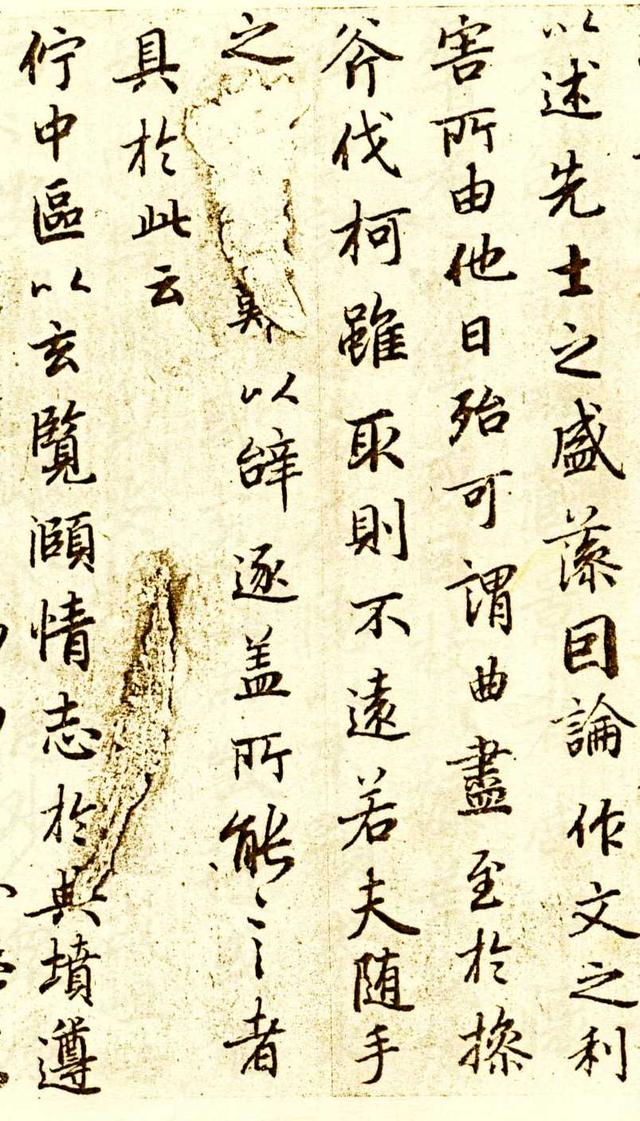 以述先士之盛藻因論作文之利
害所由他日殆可謂曲盡至於操
斧伐柯雖取則不遠若夫随手
之以辭逐盖所能言者
具於此云
佇中區以玄覽頤情志於典墳遵